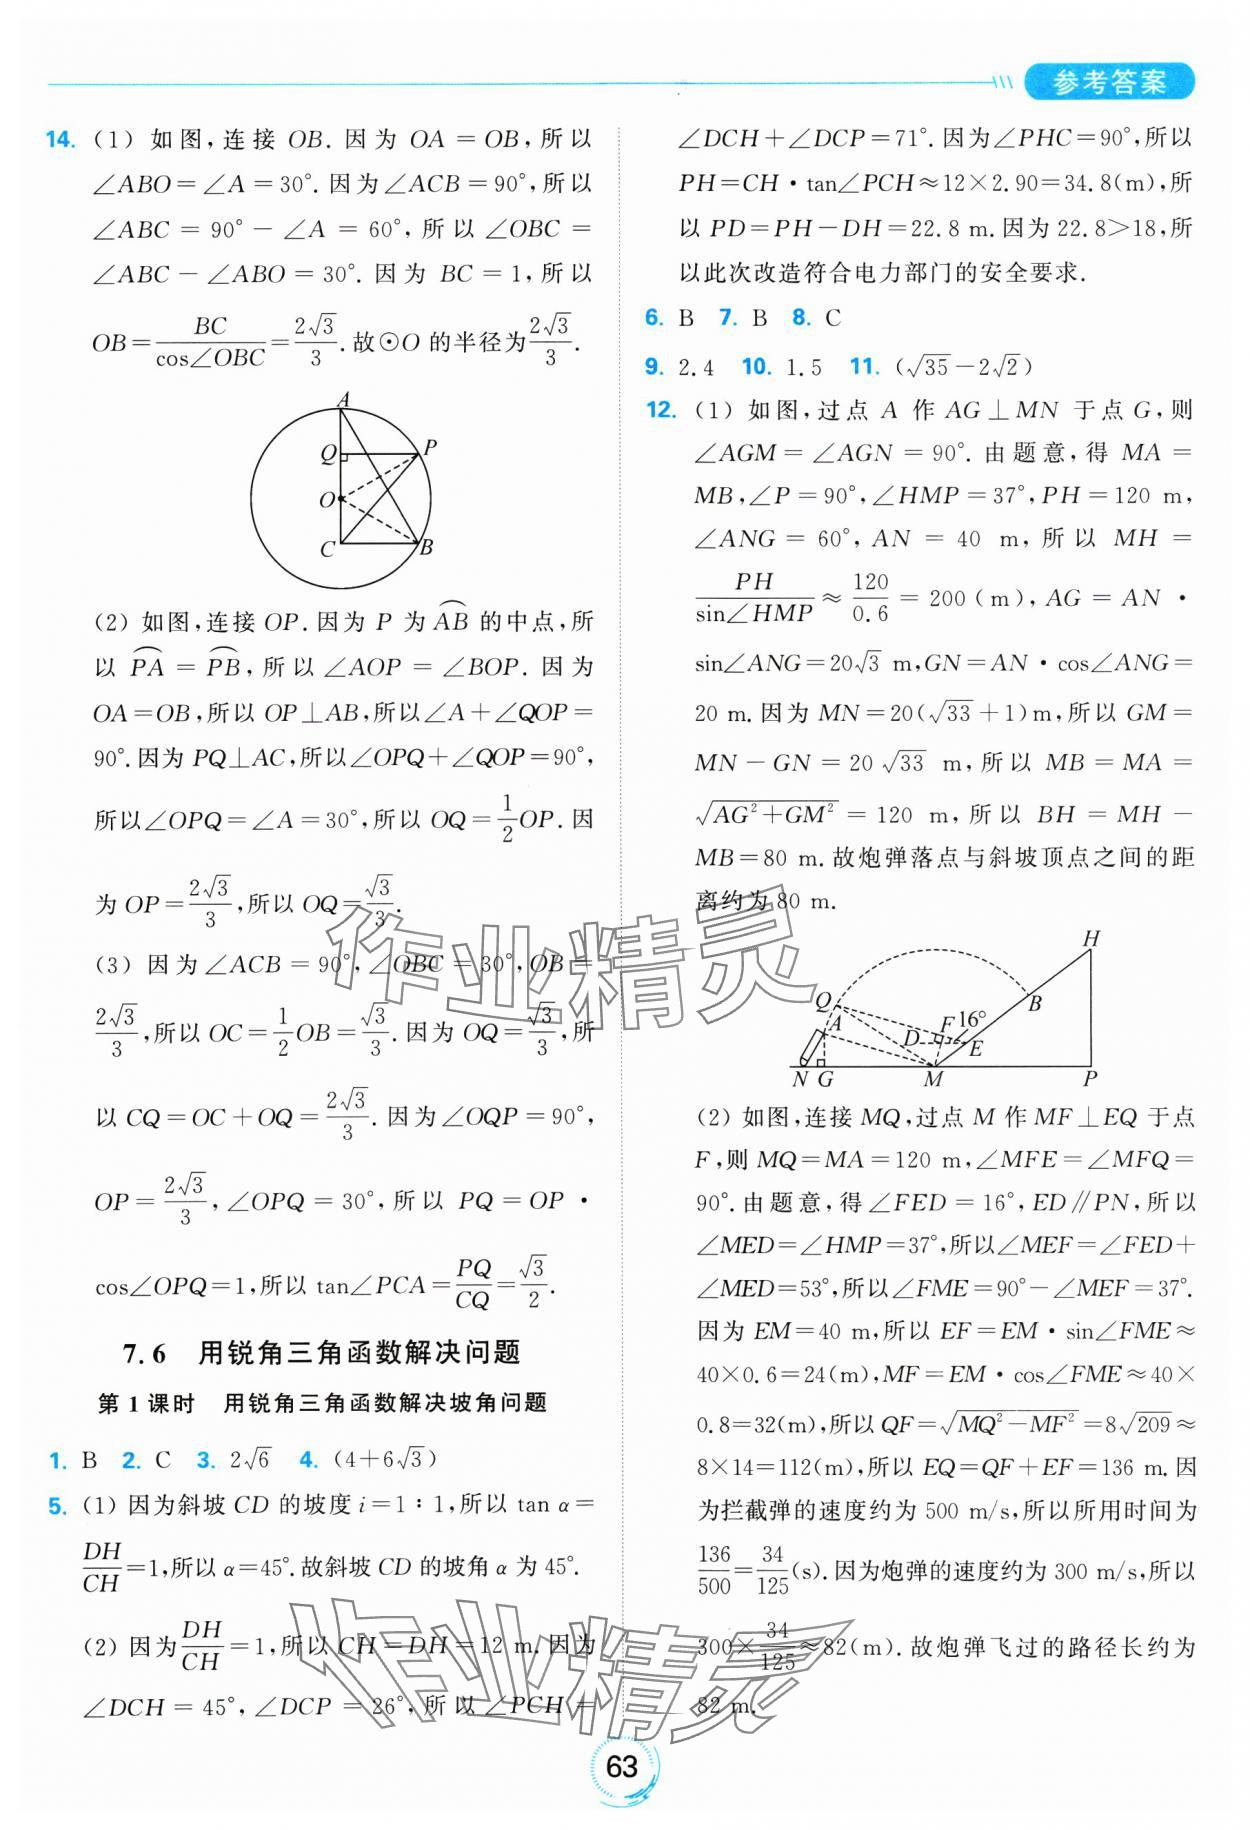 参考答案
14. (1) 如图,连接 OB. 因为 OA = OB,所以
∠ABO=∠A=30°. 因为∠ACB=90°,所以
∠ABC = 90° − ∠A = 60°, 所以 ∠OBC =
∠ABC − ∠ABO = 30°. 因为 BC = 1, 所以
OB=BC/cos∠OBC=2√3/3. 故⊙O 的半径为2√3/3.
A
Q
P
O
C
B
(2) 如图,连接 OP. 因为 P 为 $\overset{\frown}{AB}$ 的中点,所
以 $\overset{\frown}{PA}$ = $\overset{\frown}{PB}$, 所以 ∠AOP = ∠BOP. 因为
OA=OB,所以 OP⊥AB,所以∠A+∠QOP=
90°. 因为 PQ⊥AC,所以∠OPQ+∠QOP=90°,
所以∠OPQ=∠A=30°,所以 OQ=1/2OP. 因
为 OP=2√3/3,所以 OQ=√3/3.
(3) 因为∠ACB=90°,∠OBC=30°,OB=
2√3/3,所以 OC=1/2OB=√3/3. 因为 OQ=√3/3,所
以 CQ=OC+OQ=2√3/3. 因为∠OQP=90°,
OP=2√3/3,∠OPQ=30°,所以 PQ=OP·
cos∠OPQ=1,所以 tan∠PCA=PQ/CQ=√3/2.
7.6 用锐角三角函数解决问题
第 1 课时 用锐角三角函数解决坡角问题
1. B 2. C 3. 2√6 4. (4+6√3)
5. (1) 因为斜坡 CD 的坡度 i=1∶1,所以 tan α=
DH/CH=1,所以 α=45°. 故斜坡 CD 的坡角 α 为 45°.
(2) 因为DH/CH=1,所以 CH=DH=12 m. 因为
∠DCH = 45°, ∠DCP = 26°, 所以 ∠PCH =
∠DCH+∠DCP=71°. 因为∠PHC=90°,所以
PH=CH·tan∠PCH≈12×2.90=34.8(m),所
以 PD=PH−DH=22.8 m. 因为 22.8>18,所
以此次改造符合电力部门的安全要求.
6. B 7. B 8. C
9. 2.4 10. 1.5 11. (√35−2√2)
12. (1) 如图,过点 A 作 AG⊥MN 于点 G,则
∠AGM=∠AGN=90°. 由题意,得 MA=
MB,∠P=90°,∠HMP=37°,PH=120 m,
∠ANG = 60°, AN = 40 m, 所以 MH =
PH/sin∠HMP ≈ 120/0.6 = 200 (m), AG = AN ·
sin∠ANG=20√3 m,GN=AN·cos∠ANG=
20 m. 因为 MN=20(√33+1)m,所以 GM=
MN−GN=20√33 m,所以 MB=MA=
√(AG²+GM²) = 120 m, 所以 BH = MH −
MB=80 m. 故炮弹落点与斜坡顶点之间的距
离约为 80 m.
H
Q
B
A
F
16°
D
E
N G M P
(2) 如图,连接 MQ,过点 M 作 MF⊥EQ 于点
F,则 MQ=MA=120 m,∠MFE=∠MFQ=
90°. 由题意,得∠FED=16°,ED∥PN,所以
∠MED=∠HMP=37°,所以∠MEF=∠FED+
∠MED=53°,所以∠FME=90°−∠MEF=37°.
因为 EM=40 m,所以 EF=EM·sin∠FME≈
40×0.6=24(m),MF=EM·cos∠FME≈40×
0.8=32(m),所以 QF=√(MQ²−MF²)=8√209≈
8×14=112(m),所以 EQ=QF+EF=136 m. 因
为拦截弹的速度约为 500 m/s,所以所用时间为
136/500=34/125(s). 因为炮弹的速度约为 300 m/s,所以
300×34/125≈82(m). 故炮弹飞过的路径长约为
82 m.
作业精灵
作业精灵
63